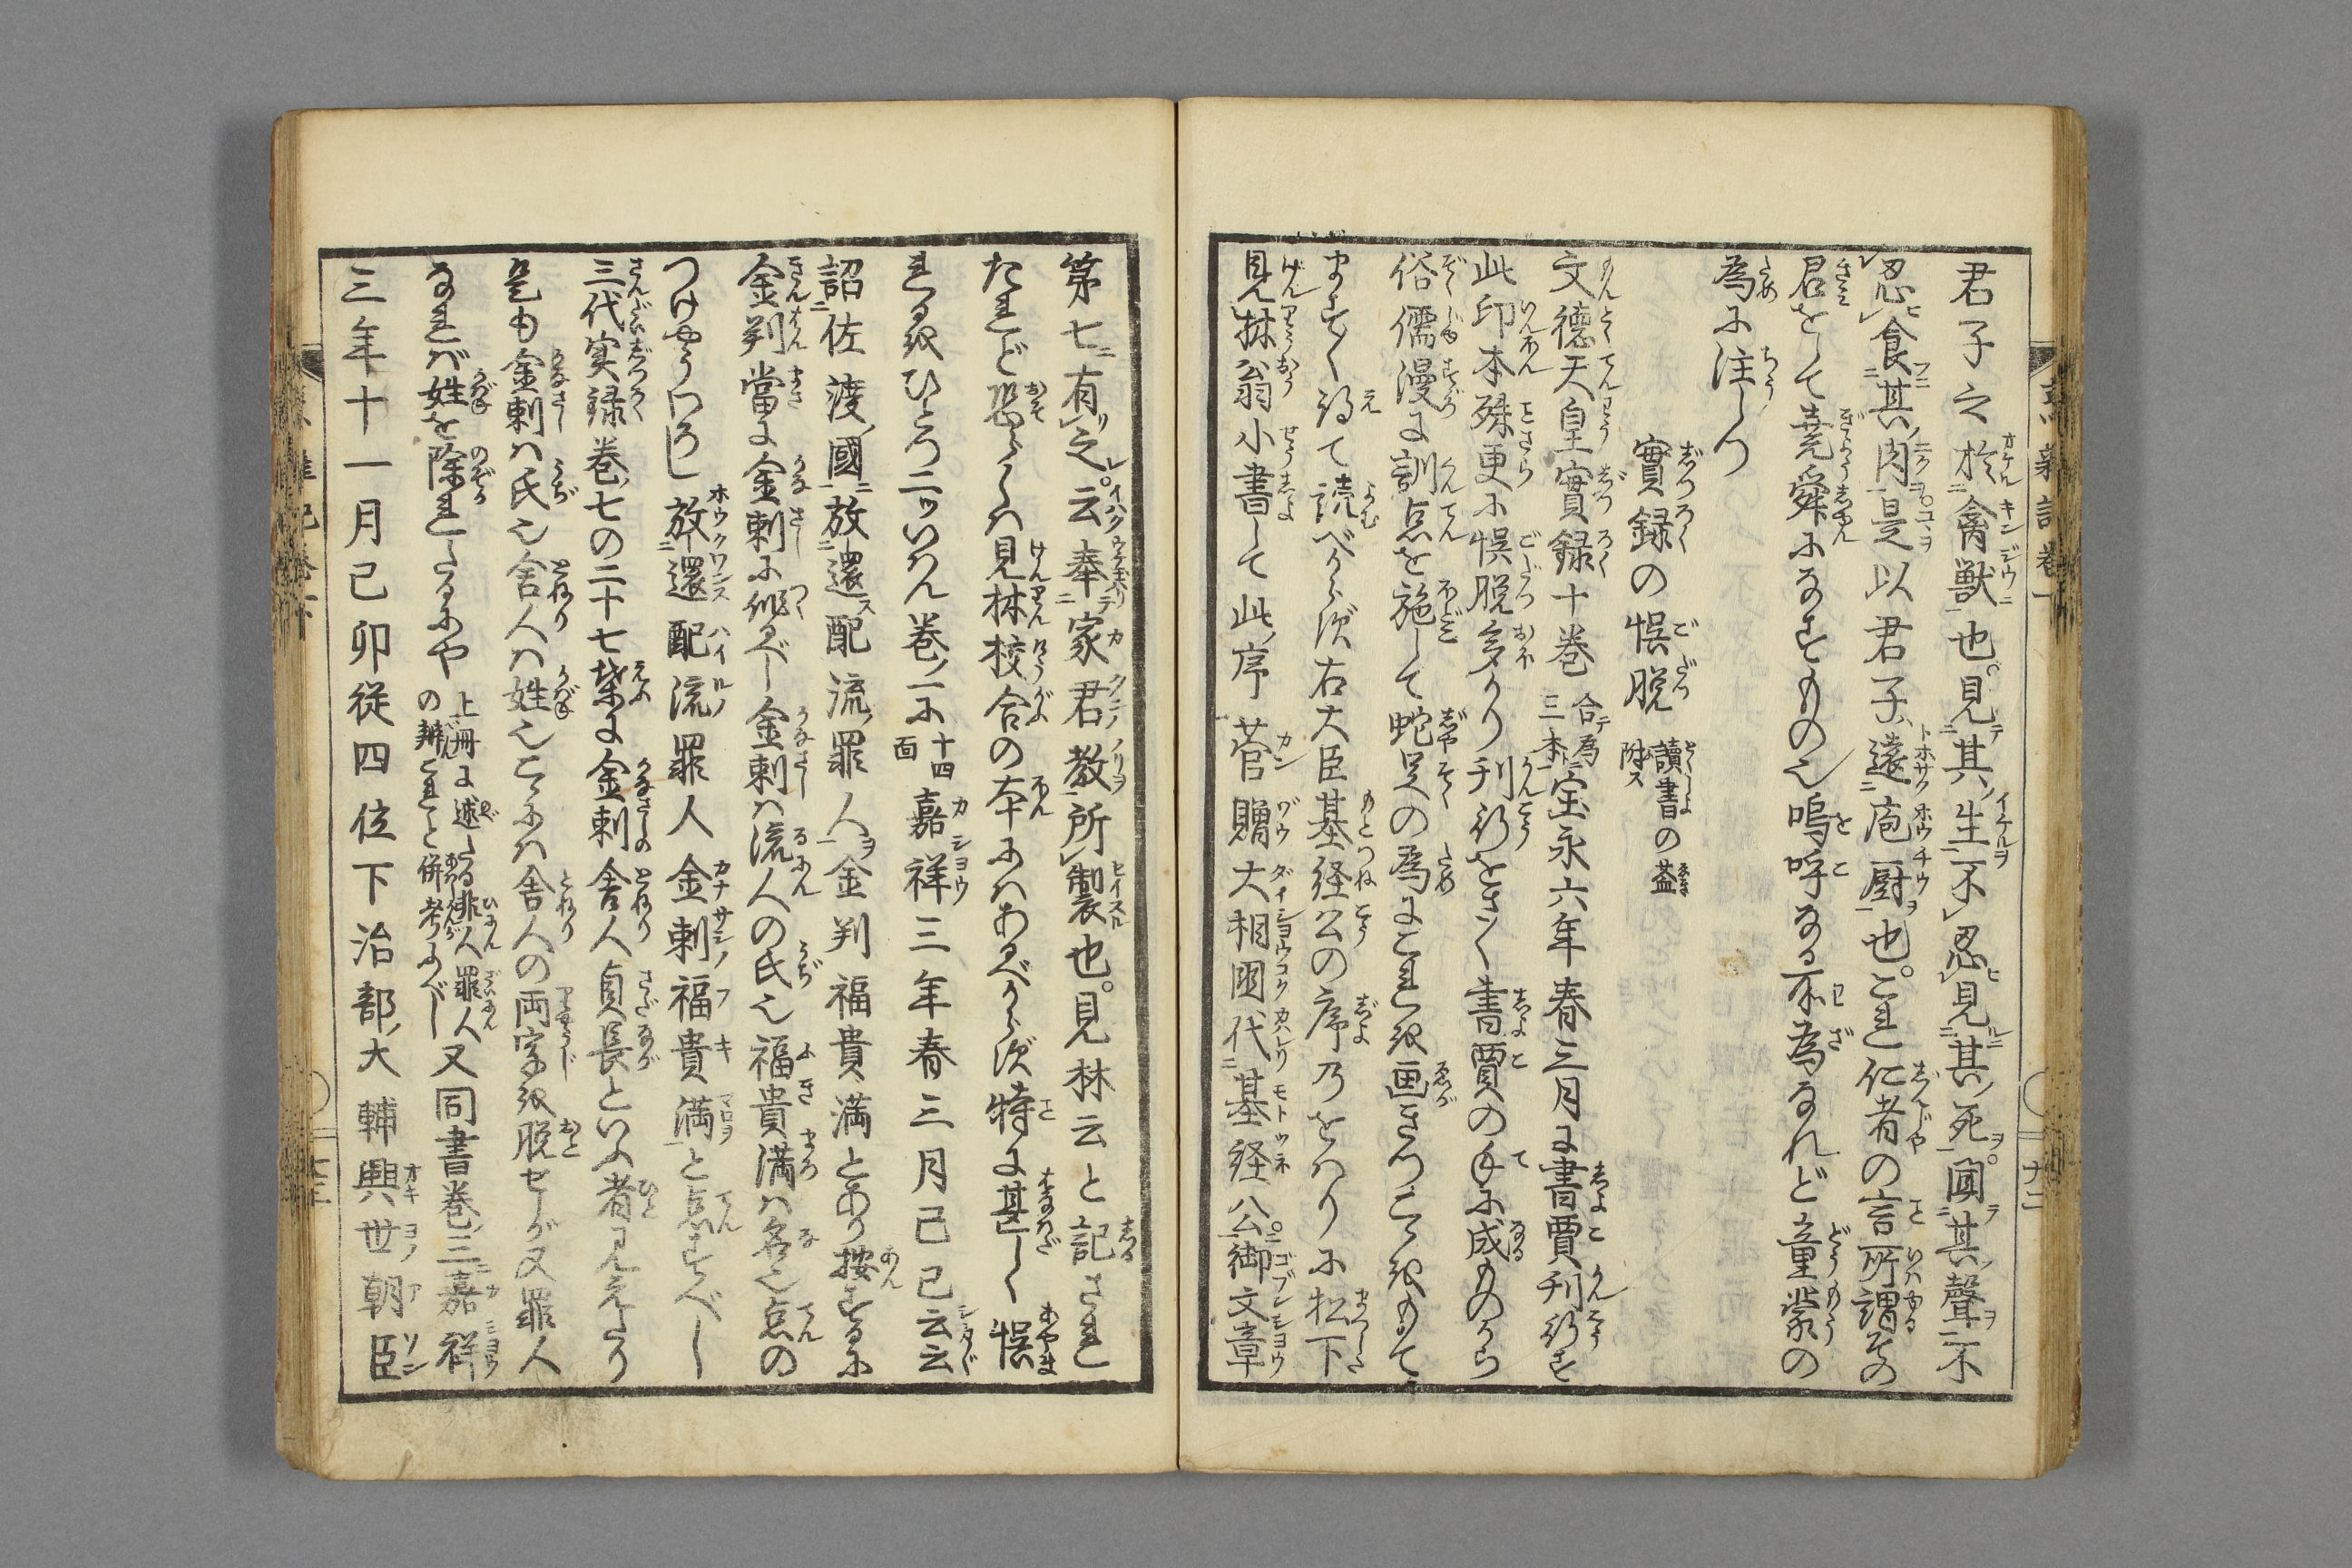 君子之於禽獣也。見其生不忍見其死。聞其聲不
忍食其肉。是以君子遠庖厨也。これ仁者の言所謂その
君をして堯舜になすもの也嗚呼なる所為なれど童蒙の
為に注しつ
實録の悞脱 讀書の益附ス
文徳天皇實録十巻 合為三本 宝永六年春三月に書賈刊行す
此印本殊更に悞脱多かり刊行をさく書賈の手に成ものから
俗儒漫に訓点を施して蛇足の為にこれを画きつこゝをもて
ますく得て読べからず右大臣基経公の序乃をはりに松下
見林翁小書して此序菅贈大相國代基経公御文章
第七有之。云奉家君教所製也。見林云と記され
たれど恐らくは見林校合の本にはあるべからず特に甚しく悞
れるをひとつ二ツいはん巻ノ一に 十四面 嘉祥三年春三月己巳云云
詔佐渡國放還配流罪人金判福貴満とあり按ずるに
金判當に金刺に作るべし金刺は流人の氏也福貴満は名也点の
つけやうわろし放還配流罪人金刺福貴満と点すべし
三代実録巻七の二十七葉に金刺舎人貞長といふ者見えたり
是も金刺は氏也舎人は姓也こゝには舎人の両字を脱せしが又罪人
なれば姓を除れしたるにや 上冊に述たる非人罪人の辨これと併考ふべし 又同書巻三嘉祥
三年十一月己卯従四位下治部大輔興世朝臣